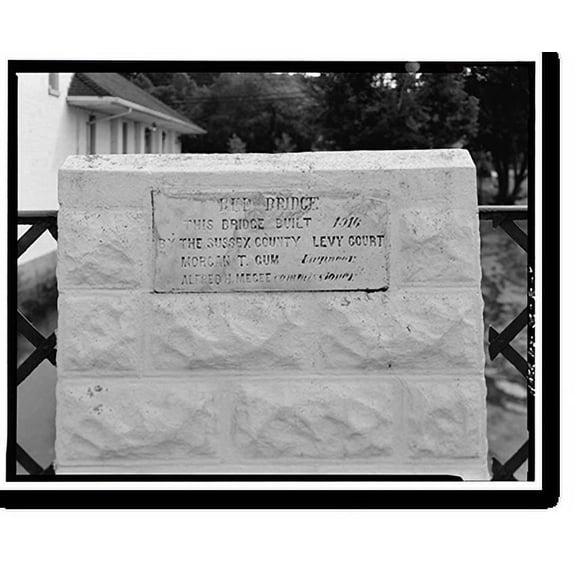 BRIDGE
THIS BRIDGE BUILT 1916
BY THE SUSSEX COUNTY LEVY COURT
MORGAN T. GUM Engineer
ALFRED H. MEGEE commissioner